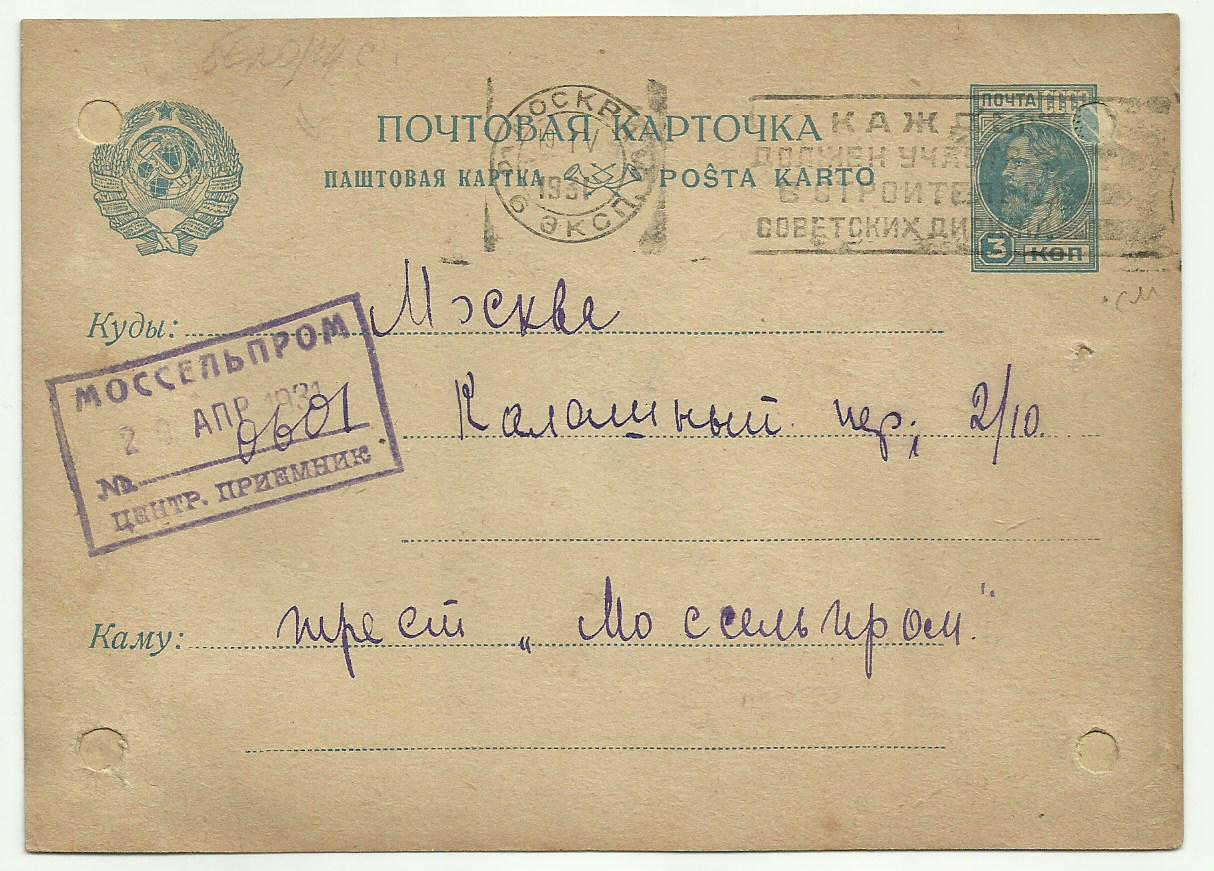 белорус.
ПОЧТОВАЯ КАРТОЧКА
ПАШТОВАЯ КАРТКА POŜTA KARTO
МОСКВА
IV
1931
6 ЭКСП.
КАЖДЫЙ
ДОЛЖЕН
В СТРОИТЕЛЬ
СОВЕТСКИХ
ПОЧТА СССР
3 КОП
Куды: Москва
Калашный пер., 2/10.
МОССЕЛЬПРОМ
АПР 1931
№ 0601
ЦЕНТР. ПРИЕМНИК
Каму: трест „Моссельпром"